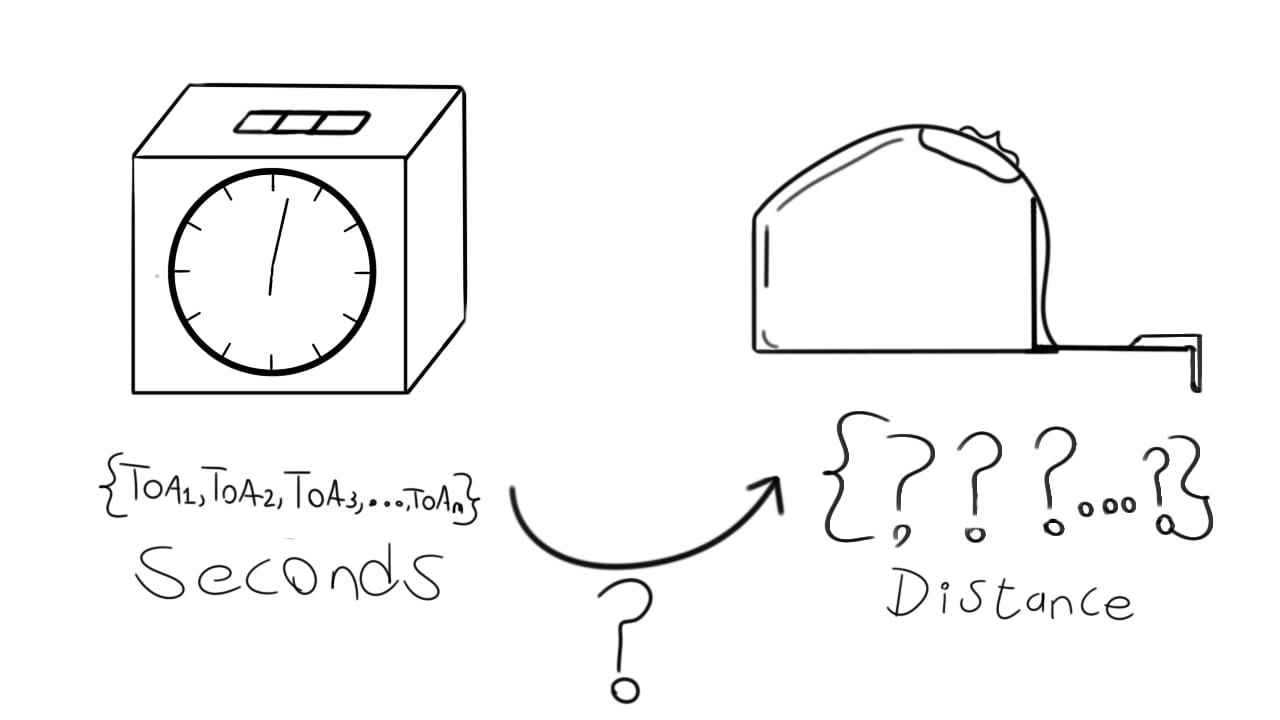 {ToA1,ToA2,ToA3,...,ToAn}
{? ? ?...?}
Seconds
Distance
?